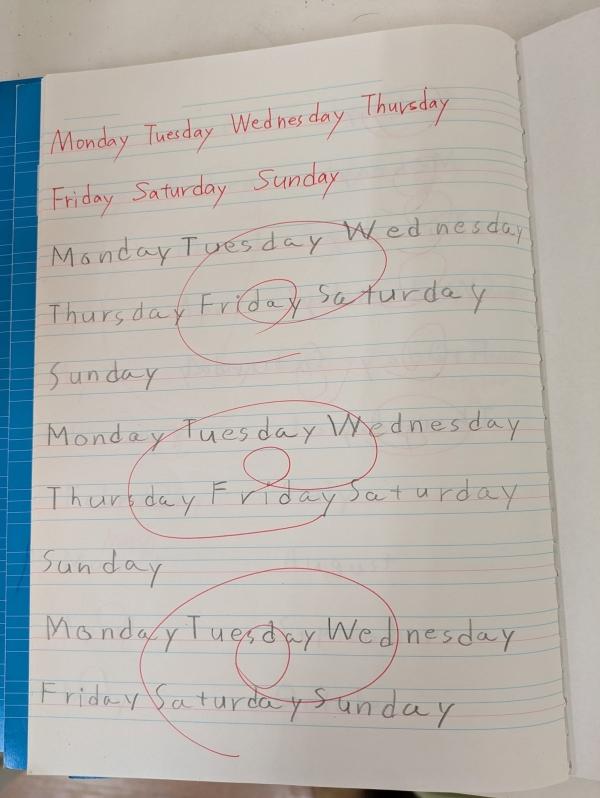 Monday Tuesday Wednesday Thursday
Friday Saturday Sunday
Monday Tuesday Wednesday
Thursday Friday Saturday
Sunday
Monday Tuesday Wednesday
Thursday Friday Saturday
Sunday
Monday Tuesday Wednesday
Friday Saturday Sunday